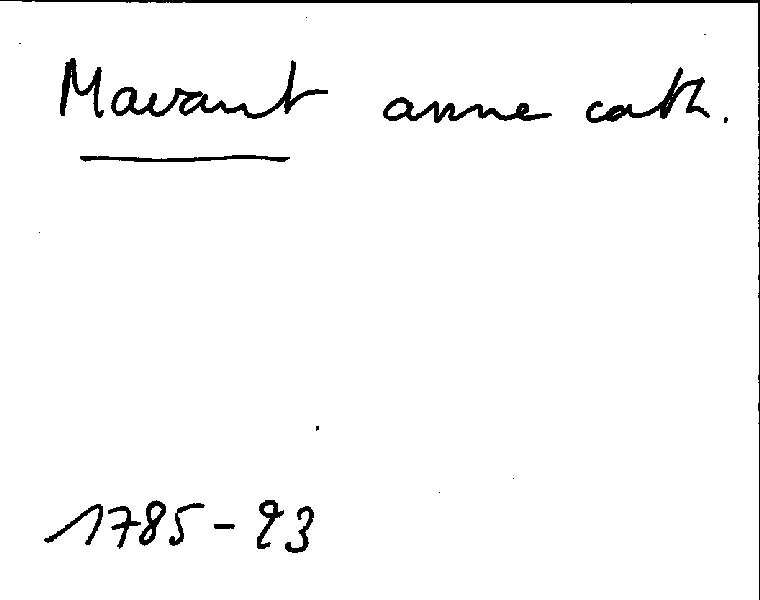 Mavant anne cath.
1785-93